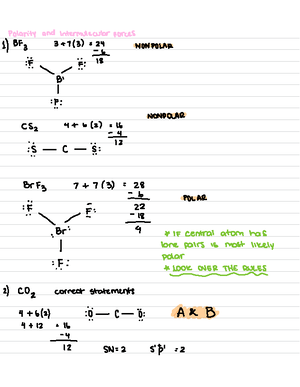 Polarity and intermolecular forces
1) BF3 3 + 7(3) = 24 NONPOLAR
- 6
18
:F: :F:
B
:F:
NONPOLAR
CS2 4 + 6(2) = 16
- 4
12
:S — C — S:
BrF3 7 + 7(3) = 28
- 6
22
:F: :F: POLAR
- 18
4
:Br * IF central atom has
lone pairs is most likely
polar
:F: * LOOK OVER THE RULES
2) CO2 correct statements
4 + 6(2) :O — C — O: A & B
4 + 12 = 16
- 4
12 SN=2 = 2